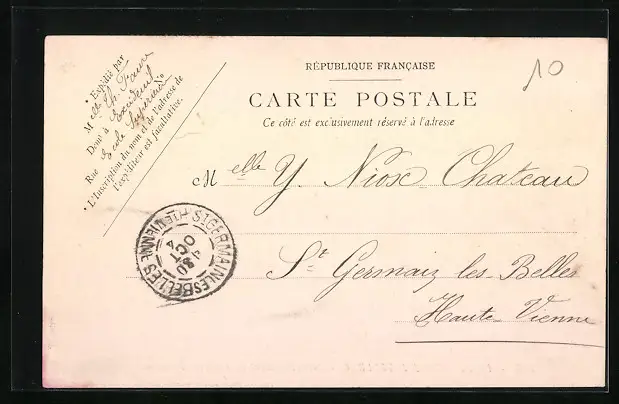 Expédié par
Melle Th. Faure
Demt à Excideuil
Rue Ecole Supérieure
L'Inscription du nom et de l'adresse de
l'expéditeur est facultative.
10
RÉPUBLIQUE FRANÇAISE
CARTE POSTALE
Ce côté est exclusivement réservé à l'adresse
Melle Y. Niose Chateau
St Germain les-Belles
Haute Vienne
ST GERMAIN LES BELLES HTE VIENNE
OCT